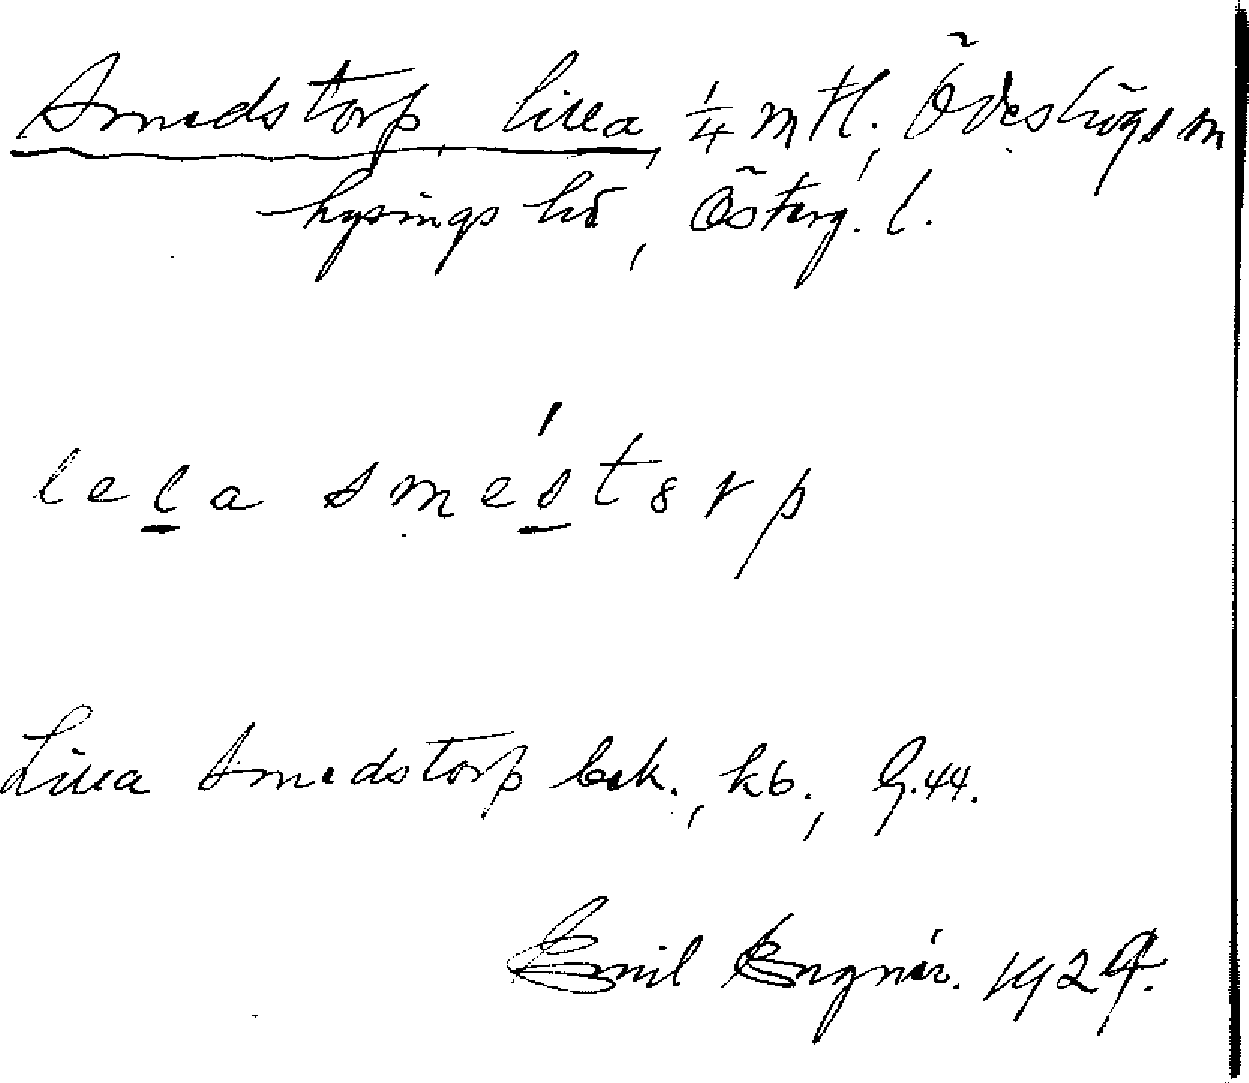 Smedstorp, lilla, 1/4 mtl., Ödeshögs sn
Lysings hd, Österg. l.
lela smé́stɞrp
Lilla Smedstorp bek., kb., G.44.
Emil Engnér. 1929.